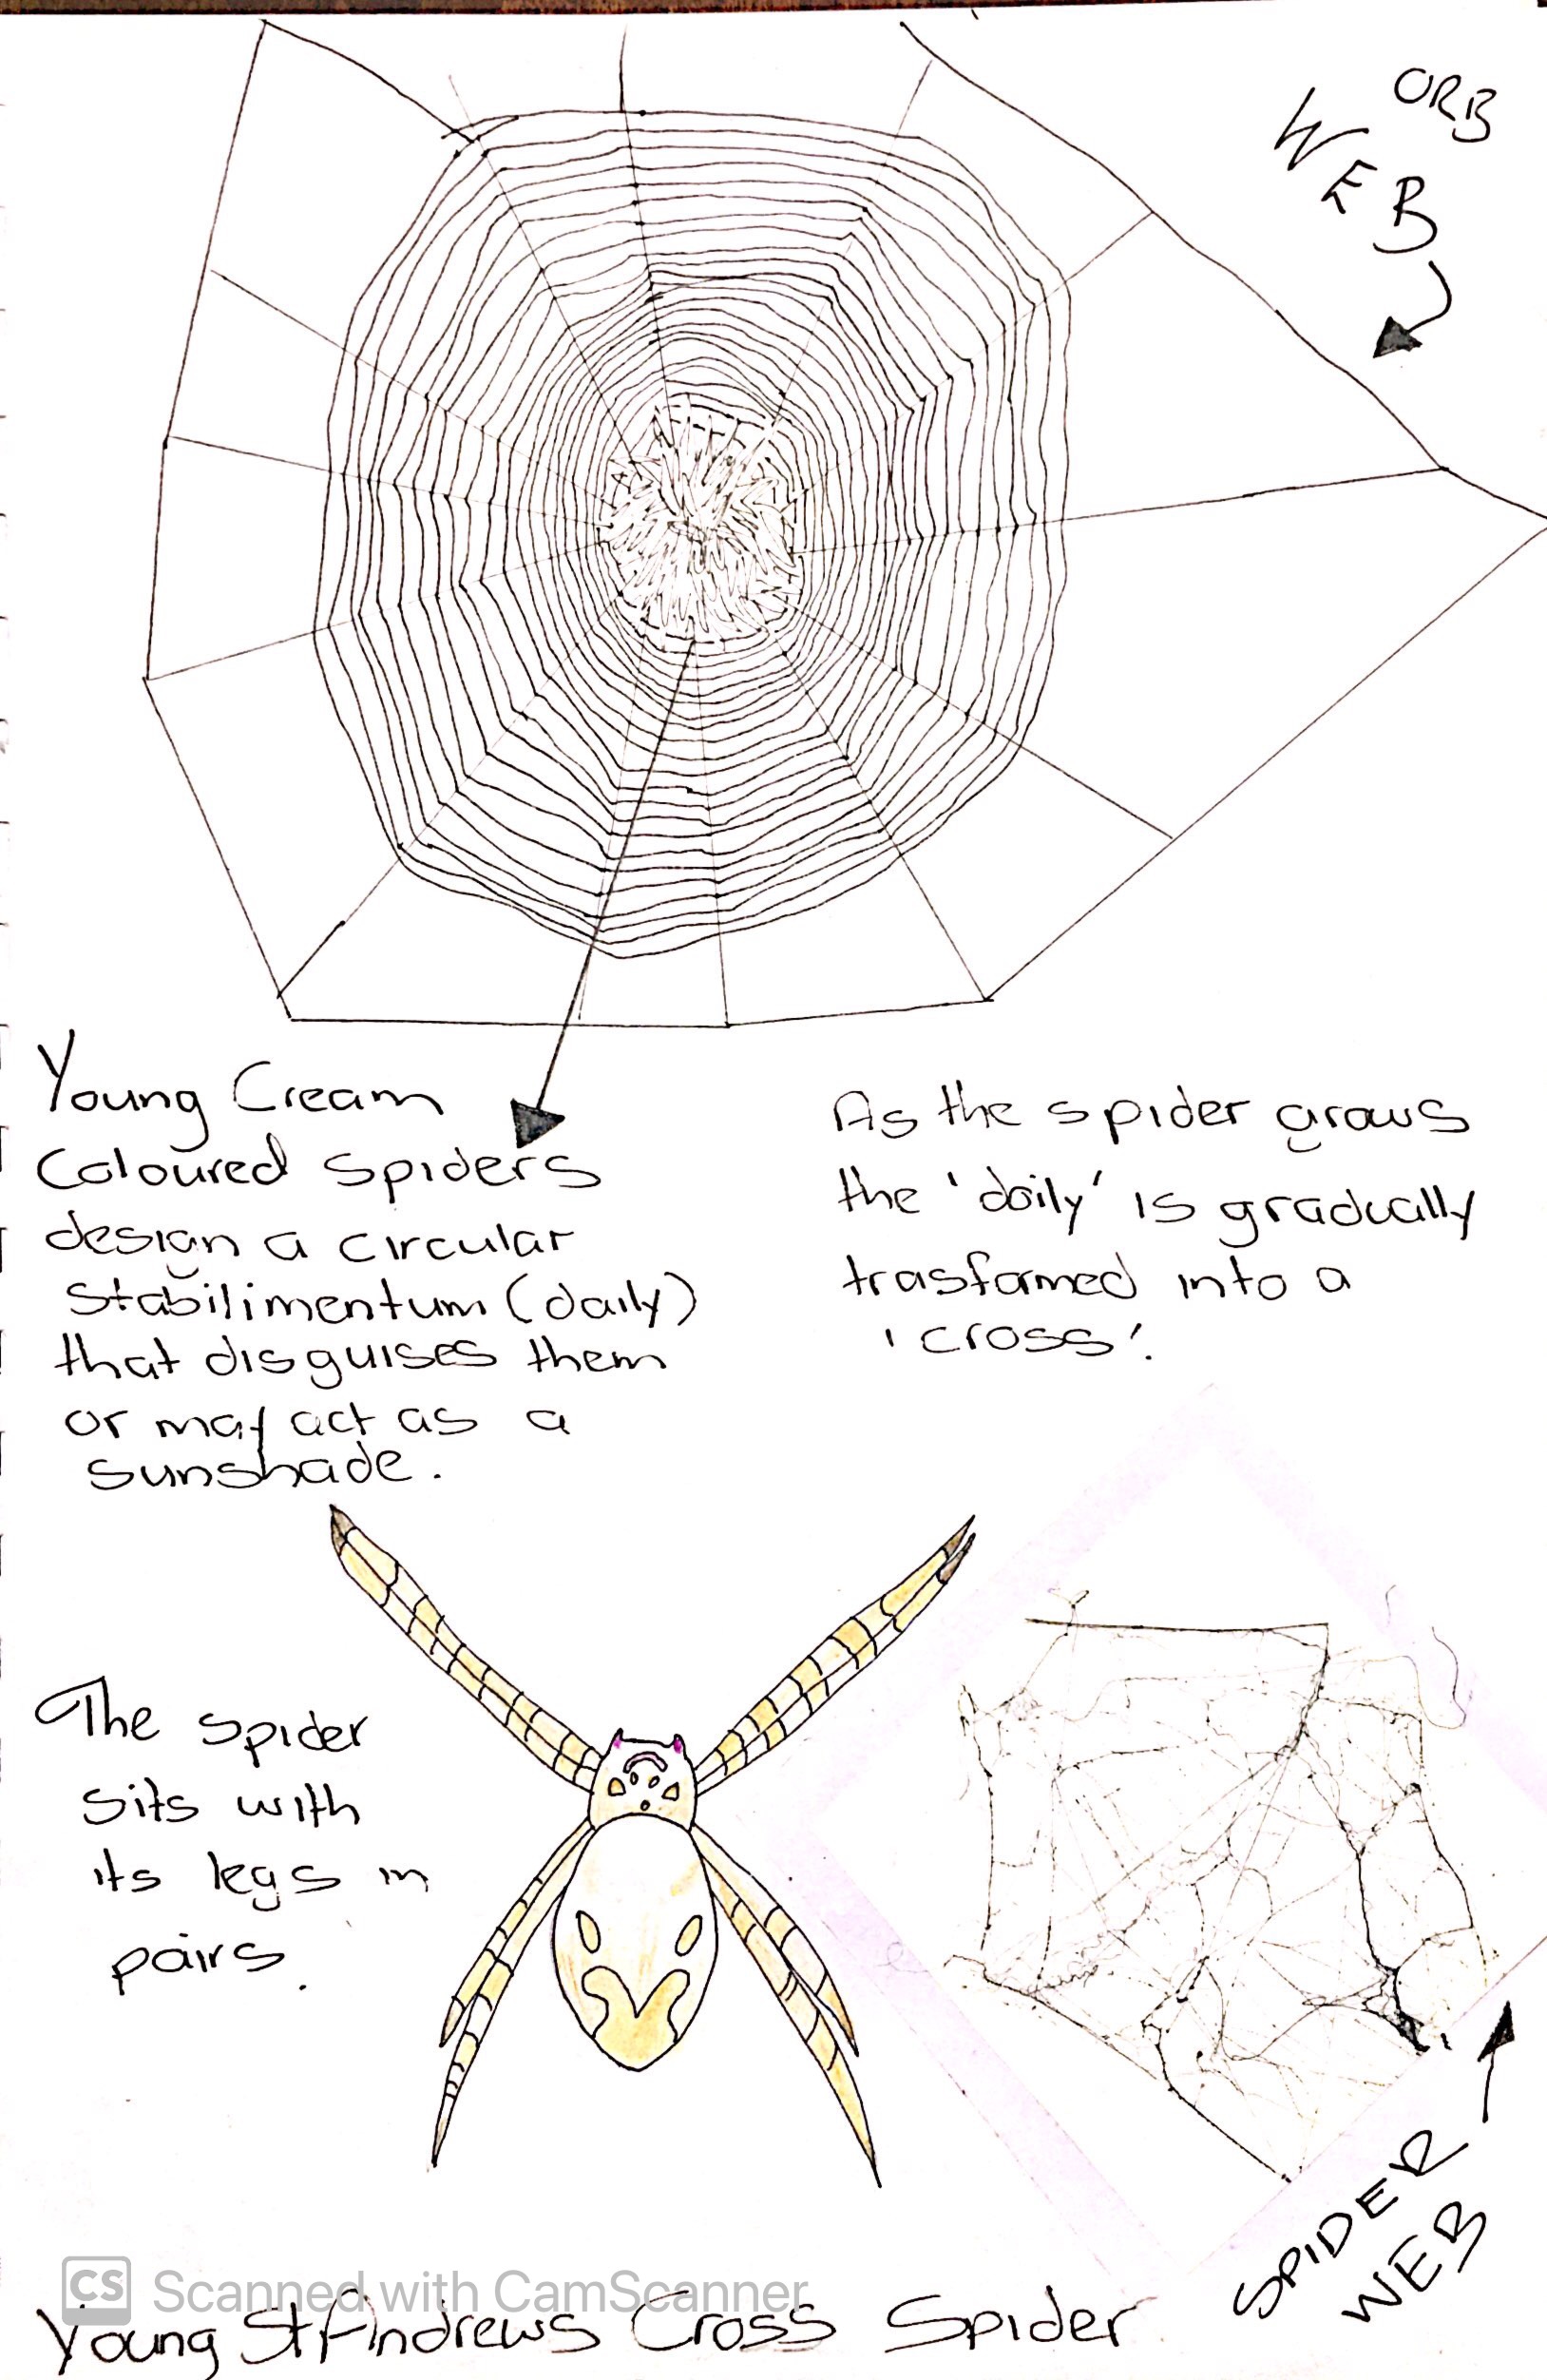 ORB
WEB
Young Cream
Coloured spiders
design a circular
stabilimentum (daily)
that disguises them
or may act as a
sunshade.
As the spider grows
the 'doily' is gradually
trasformed into a
'cross'.
The spider
sits with
its legs in
pairs.
SPIDER
WEB
CS Scanned with CamScanner
Young St Andrews Cross Spider